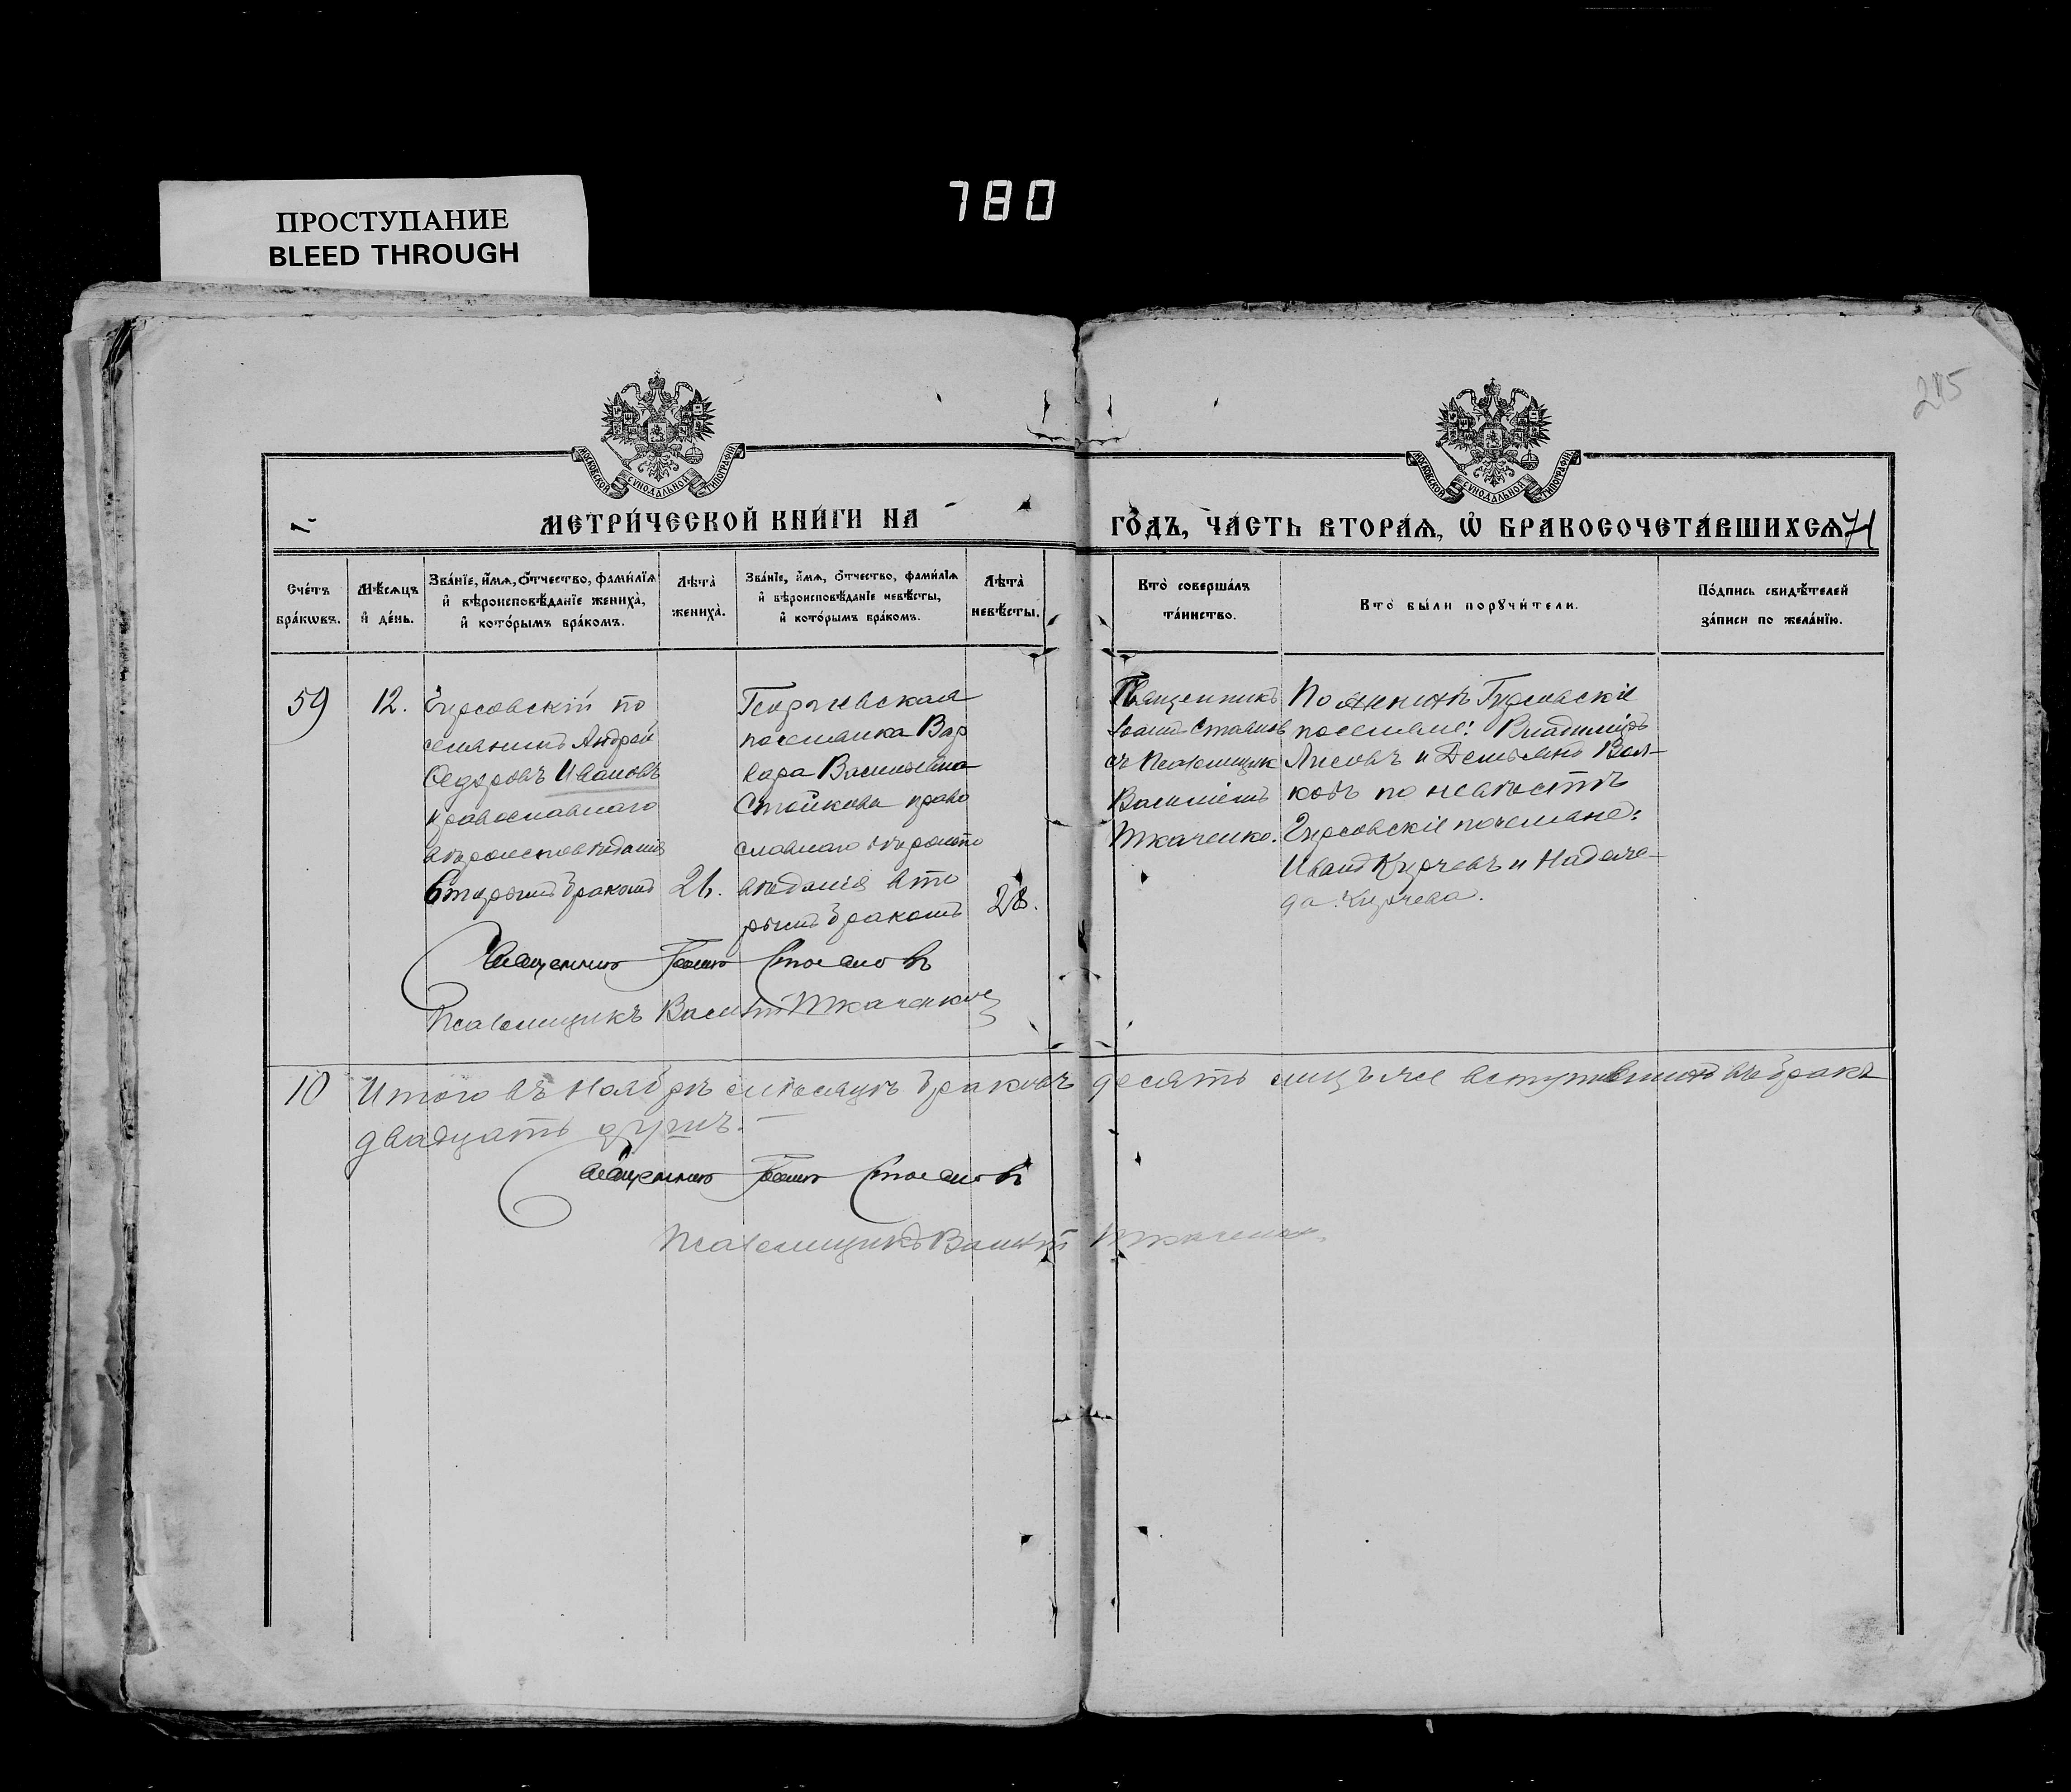 780
ПРОСТУПАНИЕ
BLEED THROUGH
215
МОСКОВСКОЙ СѴНОДАЛЬНОЙ ТИПОГРАФІИ
МОСКОВСКОЙ СѴНОДАЛЬНОЙ ТИПОГРАФІИ
МЕТРИ́ЧЕСКОЙ КНИ́ГИ НА
ГО́ДЪ, ЧА́СТЬ ВТОРА́Ѧ, Ѡ҆ БРАКОСОЧЕТА́ВШИХСѦ 71
Сче́тъ
бра́кѡвъ.
Мѣ́сѧцъ
и҆ де́нь.
Зва́нїе, и҆́мѧ, о҆́тчество, фами́лїѧ
и҆ вѣроисповѣ́данїе жениха̀,
и҆ кото́рымъ бра́комъ.
Лѣта̀
жениха̀.
Зва́нїе, и҆́мѧ, о҆́тчество, фами́лїѧ
и҆ вѣроисповѣ́данїе невѣ́сты,
и҆ кото́рымъ бра́комъ.
Лѣта̀
невѣ́сты.
Кто̀ соверша́лъ
та́инство.
Кто̀ бы́ли порꙋчи́тели.
По́дпись свидѣ́телей
за́писи по жела́нїю.
59
12.
Гирсовскій по
селянинъ Андрей
Ѳедоровъ Ивановъ
православнаго
вѣроисповѣданія
вторымъ бракомъ
26.
Георгіевская
поселянка Вар
вара Васильевна
Стойкова право
славнаго вѣроиспо
вѣданія вто
рымъ бракомъ
28.
Священникъ
Іоаннъ Стояновъ
съ Псаломщик
Василіемъ
Ткаченко.
По женихѣ Гирсовскіе
поселяне: Владиміръ
Лисовъ и Демьянъ Вол-
ковъ по невѣстѣ
Гирсовскіе поселяне:
Иванъ Кирчевъ и Надеж-
да Кирчева.
Священникъ Іоаннъ Стояновъ
Псаломщикъ Василій Ткаченко
10
Итого въ Ноябрѣ мѣсяцѣ браковъ десять лицъ же вступившихъ въ бракъ
двадцать душъ.
Священникъ Іоаннъ Стояновъ
Псаломщикъ Василій Ткаченко